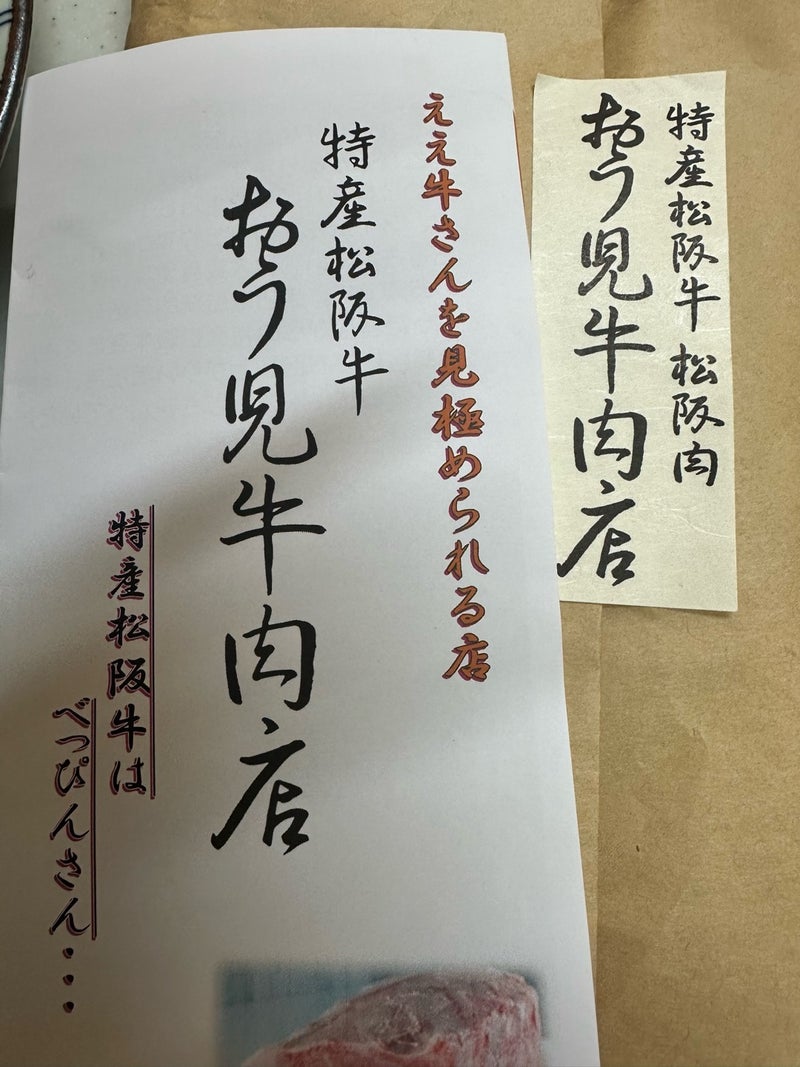 特産松阪牛 松阪肉
おう児牛肉店
ええ牛さんを見極められる店
特産松阪牛
おう児牛肉店
特産松阪牛は
べっぴんさん・・・